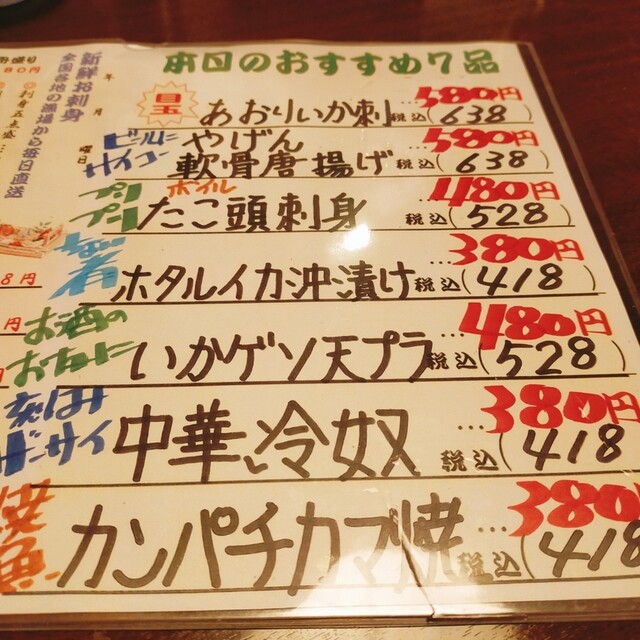 本日のおすすめ7品
目玉 あおりいか刺 …580円 税込(638)
ビールにサイコー やげん軟骨唐揚げ …580円 税込(638)
プリプリ ボイルたこ頭刺身 …480円 税込(528)
肴 ホタルイカ沖漬け …380円 税込(418)
お酒のおともに いかゲソ天プラ …480円 税込(528)
刻みザーサイ 中華冷奴 …380円 税込(418)
焼魚 カンパチカマ焼 …380 税込(418
新鮮お刺身
全国各地の漁場から毎日直送
年 月 曜日
80円
8円
円